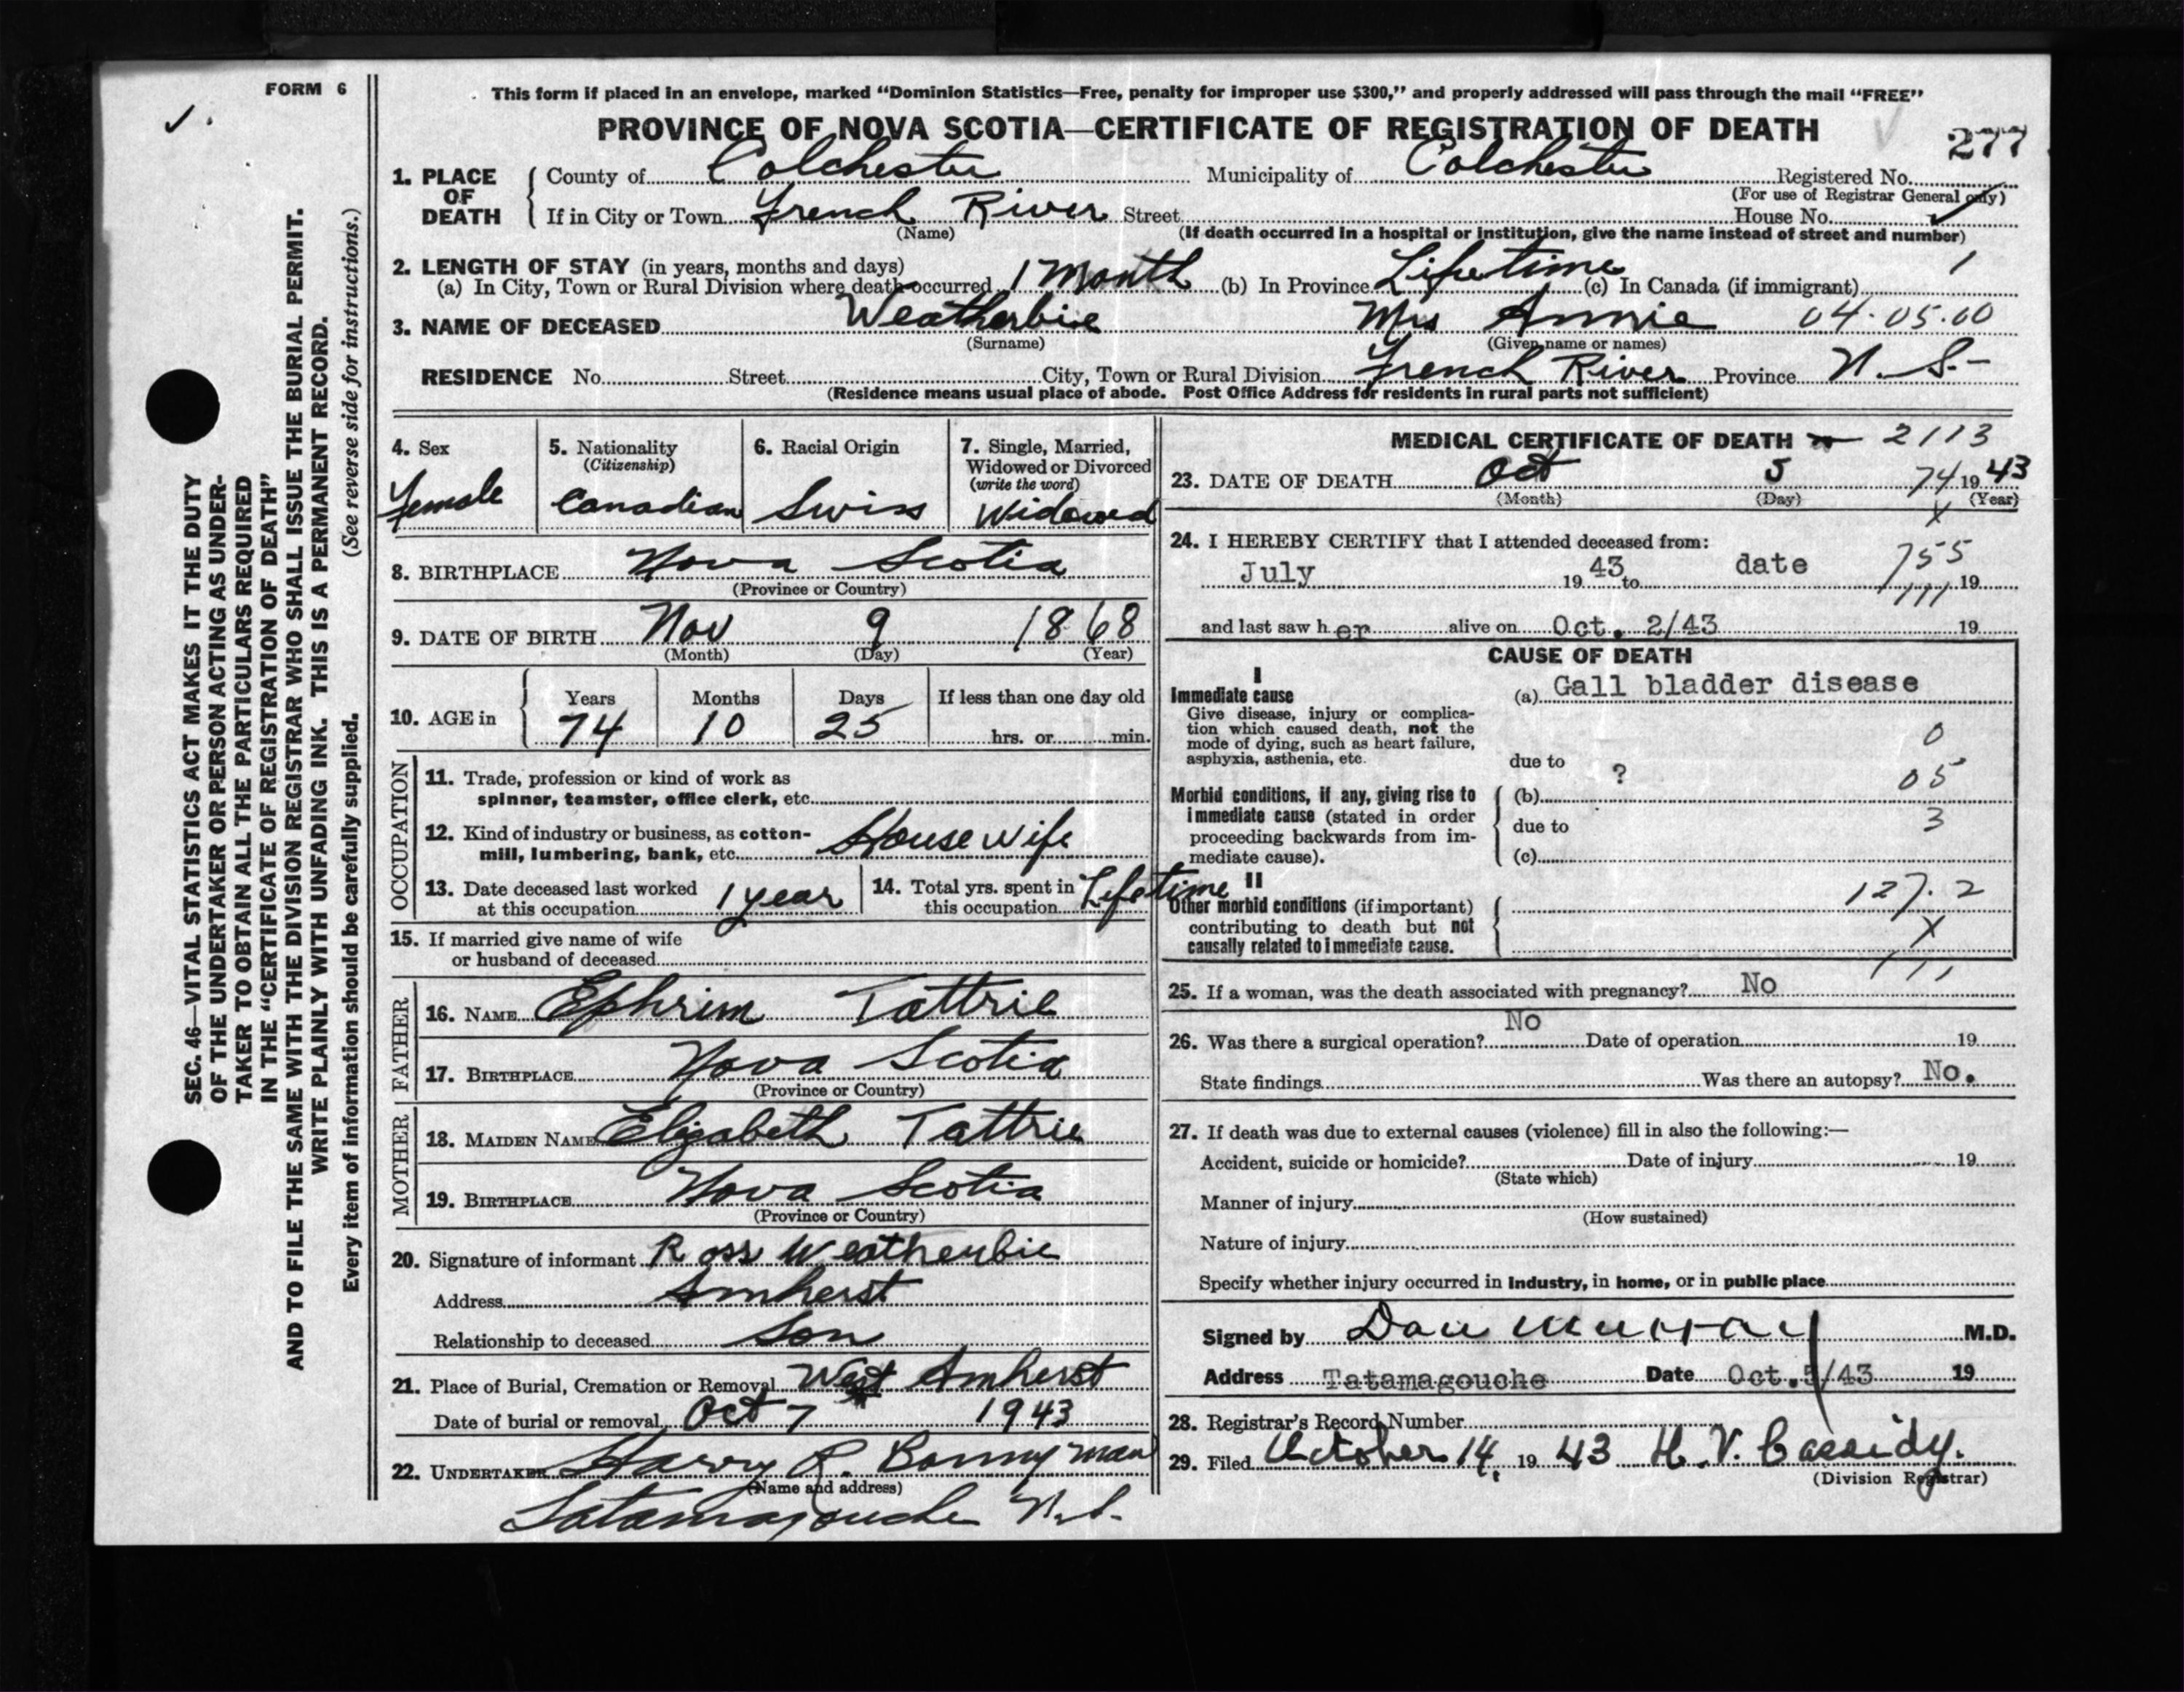 FORM 6
This form if placed in an envelope, marked “Dominion Statistics—Free, penalty for improper use $300,” and properly addressed will pass through the mail “FREE”
PROVINCE OF NOVA SCOTIA—CERTIFICATE OF REGISTRATION OF DEATH
277
1. PLACE OF DEATH County of Colchester Municipality of Colchester Registered No.
(For use of Registrar General only)
If in City or Town French River Street House No.
(Name) (If death occurred in a hospital or institution, give the name instead of street and number)
2. LENGTH OF STAY (in years, months and days)
(a) In City, Town or Rural Division where death occurred 1 Month (b) In Province Lifetime (c) In Canada (if immigrant) 1
3. NAME OF DECEASED Weatherbie Mrs Annie 04.05.00
(Surname) (Given name or names)
RESIDENCE No. Street City, Town or Rural Division French River Province N. S.
(Residence means usual place of abode. Post Office Address for residents in rural parts not sufficient)
4. Sex
Female
5. Nationality
(Citizenship)
Canadian
6. Racial Origin
Swiss
7. Single, Married,
Widowed or Divorced
(write the word)
Widowed
8. BIRTHPLACE Nova Scotia
(Province or Country)
9. DATE OF BIRTH Nov 9 1868
(Month) (Day) (Year)
10. AGE in Years Months Days If less than one day old
74 10 25 hrs. or min.
OCCUPATION
11. Trade, profession or kind of work as
spinner, teamster, office clerk, etc.
12. Kind of industry or business, as cotton-
mill, lumbering, bank, etc. House wife
13. Date deceased last worked
at this occupation 1 year
14. Total yrs. spent in
this occupation Lifetime
15. If married give name of wife
or husband of deceased
FATHER
16. NAME Ephrim Tattrie
17. BIRTHPLACE Nova Scotia
(Province or Country)
MOTHER
18. MAIDEN NAME Elizabeth Tattrie
19. BIRTHPLACE Nova Scotia
(Province or Country)
20. Signature of informant Ross Weatherbie
Address Amherst
Relationship to deceased Son
21. Place of Burial, Cremation or Removal West Amherst
Date of burial or removal Oct 7 1943
22. UNDERTAKER Harry R. Bonnyman
(Name and address)
Tatamagouche N.S.
MEDICAL CERTIFICATE OF DEATH 2113
23. DATE OF DEATH Oct 5 74 1943
(Month) (Day) (Year)
X
24. I HEREBY CERTIFY that I attended deceased from:
July 19 43 to date 19
755
111
and last saw her alive on Oct. 2/43 19
CAUSE OF DEATH
I
Immediate cause
Give disease, injury or complica-
tion which caused death, not the
mode of dying, such as heart failure,
asphyxia, asthenia, etc.
(a) Gall bladder disease
0
due to
?
05
Morbid conditions, if any, giving rise to
immediate cause (stated in order
proceeding backwards from im-
mediate cause).
(b)
due to
3
(c)
II
Other morbid conditions (if important)
contributing to death but not
causally related to immediate cause.
127.2
X
111
25. If a woman, was the death associated with pregnancy? No
26. Was there a surgical operation? No Date of operation 19
State findings Was there an autopsy? No.
27. If death was due to external causes (violence) fill in also the following:—
Accident, suicide or homicide? Date of injury 19
(State which)
Manner of injury
(How sustained)
Nature of injury
Specify whether injury occurred in Industry, in home, or in public place
Signed by Dan Murray M.D.
Address Tatamagouche Date Oct. 5/43 19
28. Registrar's Record Number
29. Filed October 14, 1943 H. V. Cassidy.
(Division Registrar)
SEC. 46—VITAL STATISTICS ACT MAKES IT THE DUTY
OF THE UNDERTAKER OR PERSON ACTING AS UNDER-
TAKER TO OBTAIN ALL THE PARTICULARS REQUIRED
IN THE “CERTIFICATE OF REGISTRATION OF DEATH”
AND TO FILE THE SAME WITH THE DIVISION REGISTRAR WHO SHALL ISSUE THE BURIAL PERMIT.
WRITE PLAINLY WITH UNFADING INK. THIS IS A PERMANENT RECORD.
Every item of information should be carefully supplied. (See reverse side for instructions.)